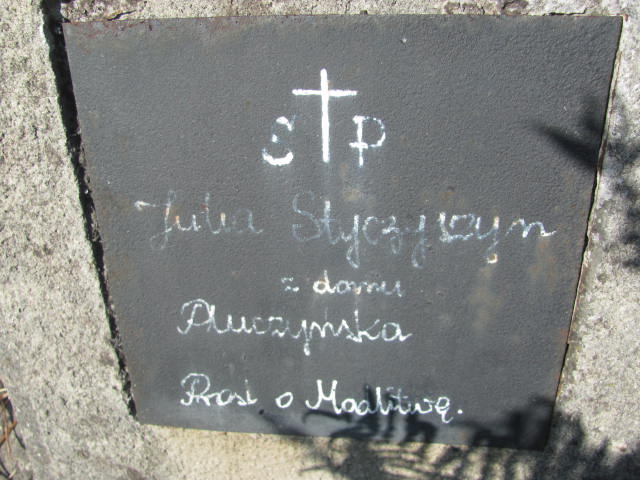 Ś P
Julia Styczyszyn
z domu
Pluczyńska
Prosi o Modlitwę.